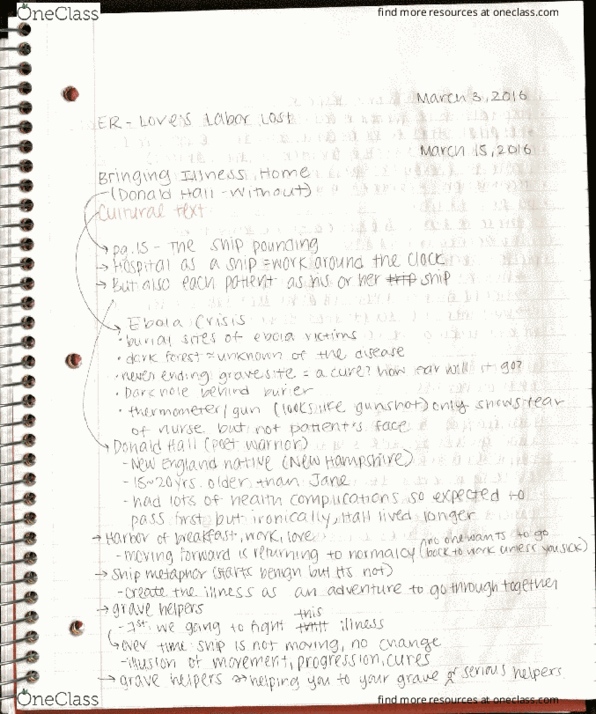 OneClass
find more resources at oneclass.com
March 3, 2016
ER - Lovers Labor Lost
March 15, 2016
Bringing Illness Home
(Donald Hall - Without)
Cultural text
pg. 15 - The ship pounding
→ Hospital as a ship = work around the clock
→ But also each patient as his or her ship
Ebola Crisis
• burial sites of ebola victims
• dark forest = unknown of the disease
• never ending gravesite = a cure? how far will it go?
• Dark hole behind burier
• thermometer/gun (looks like gunshot) only shows fear
of nurse but not patient's face
Donald Hall (poet warrior)
- New England native (New Hampshire)
- 15~20 yrs. older than Jane
- had lots of health complications so expected to
pass first but ironically, Hall lived longer
→ Harbor of breakfast, work, love
- moving forward is returning to normalcy (no one wants to go back to work unless you sick)
→ Ship metaphor (starts benign but its not)
- create the illness as an adventure to go through together
→ grave helpers
- 1st: we going to fight this illness
↳ over time ship is not moving, no change
- illusion of movement, progression, cures
→ grave helpers → helping you to your grave or serious helpers
OneClass
find more resources at oneclass.com